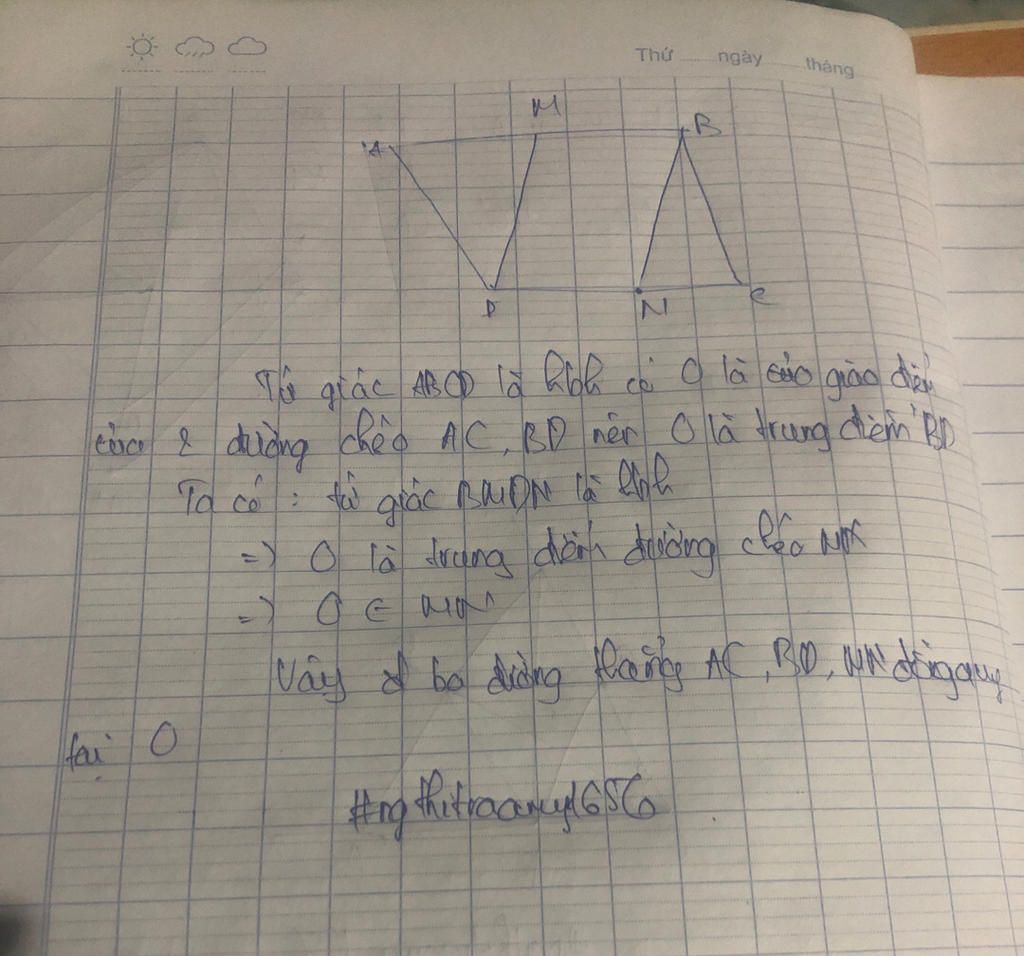 Thứ ngày tháng
M
A
B
D
N
C
Tứ giác ABCD là hbh có O là của giao điểm
của 2 đường chéo AC, BD nên O là trung điểm BD
Ta có : tứ giác BMDN là hbh
=) O là trung điểm đường chéo MN
=) O ∈ MN
Vậy ba đường thẳng AC, BD, MN đồng quy
tại O